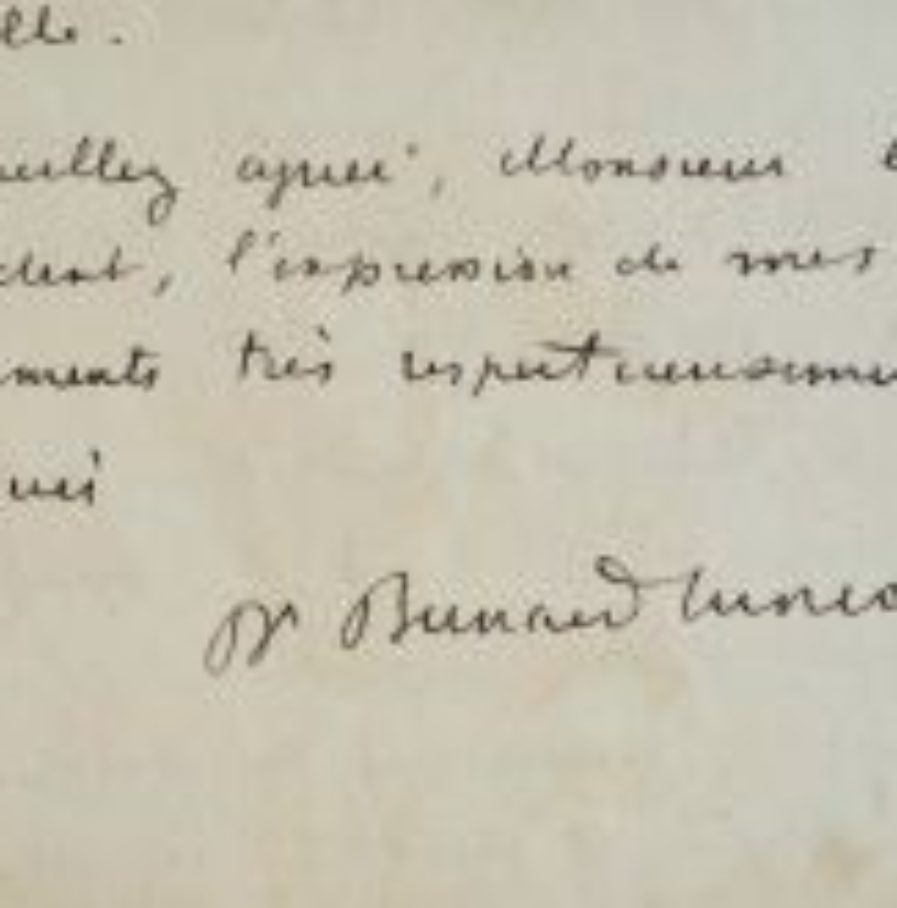 lle.
euillez agréer, Monsieur l
dent, l'expression de mes
ments très respectueuseme
ués
Dr Bernard